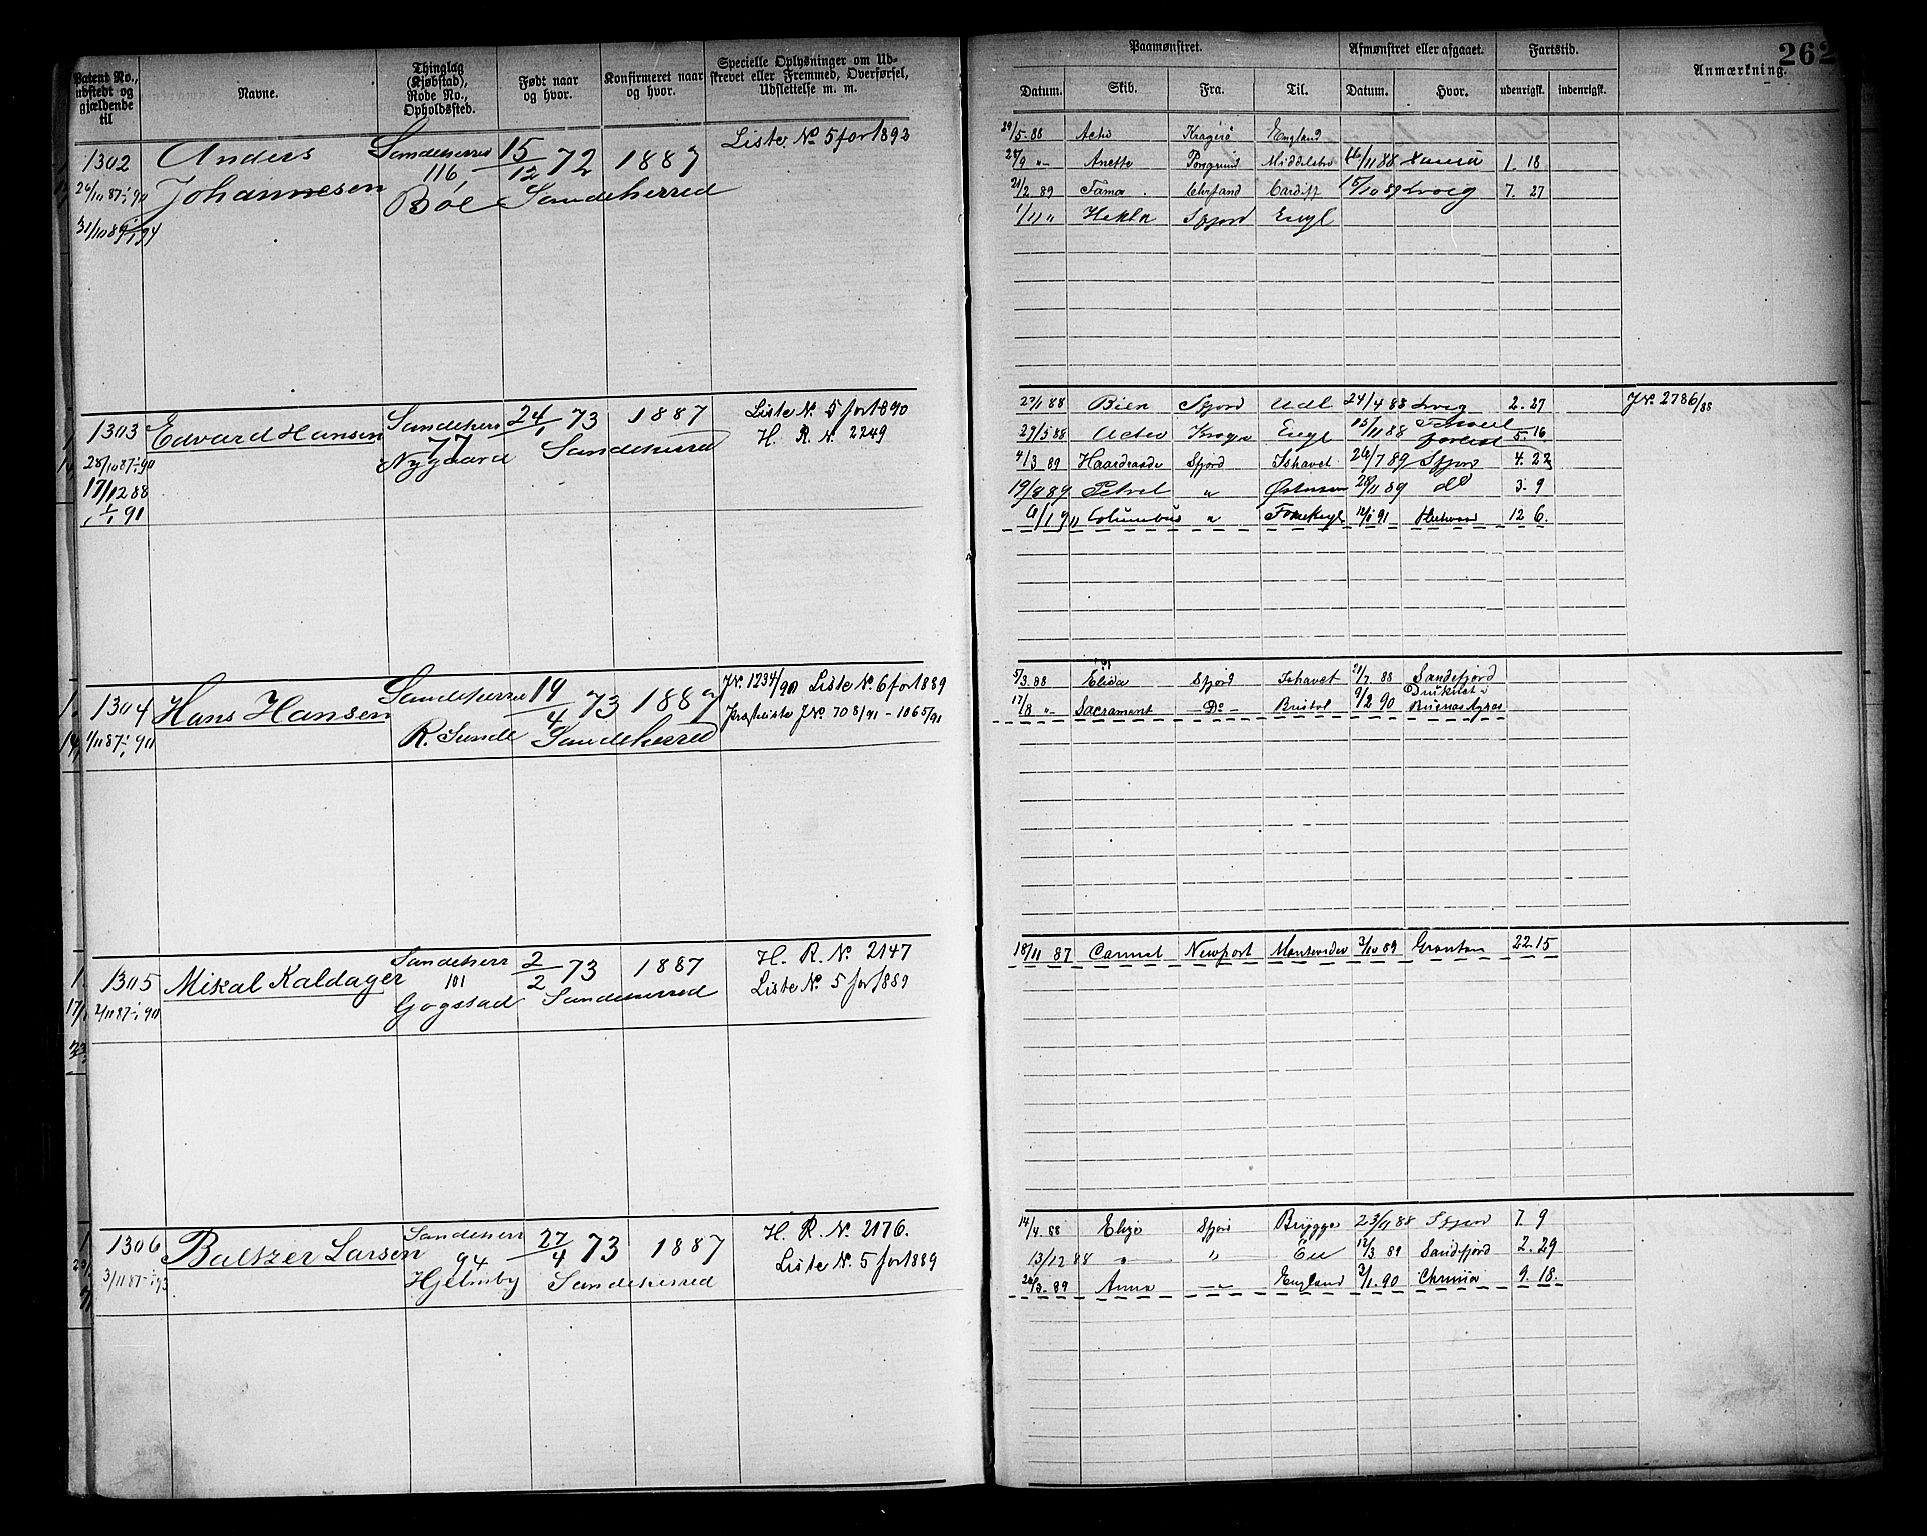 262
Patent No., udstedt og gjældende til
Navne.
Thinglag (Kjøbstad), Rode No., Opholdssted.
Født naar og hvor.
Konfirmeret naar og hvor.
Specielle Oplysninger om Udskrevet eller Fremmed, Overførsel, Udslettelse m. m.
Paamønstret.
Afmønstret eller afgaaet.
Fartstid.
Anmærkning.
Datum. Skib. Fra. Til. Datum. Hvor. udenrigsk. indenrigsk.
1302 Anders Johannesen
26/10 87-1/1 90
31/10 89 1/1 94
Sandeherred 116 Bøe
15/12 72 1887 Sandeherred
Liste No 5 for 1893
29/5-88 Activ Kragerø England
27/9 " Anette Porsgrund Middelsbro 16/11 88 Xania 1. 18
21/2 89 Fama Chrsand Cardiff 15/10 89 Lvig 7. 27
1/11 " Hekla Sfjord Engl
1303 Edvard Hansen
28/10 87-1/1 90
17/12 88
1/1 91
Sandeherr 77 Nygaard
24/1 73 1887 Sandeherred
Liste No 5 for 1890
H. R. No 2249
27/1 88 Bien Sfjord Udl 24/4 88 Lvig 2. 27 JNo 2786/88
29/5 88 Activ Kragø Engl 15/11 88 forlist 5. 16
4/3 89 Haardraade Sfjord Ishavet 26/7 89 Sfjord 4. 22
19/8 89 Petrel " Østersøen 28/11 89 do 3. 9
6/1 90 Columbus " 12/1 91 12 6.
1304 Hans Hansen
1/11 87-1/1 90
Sandeherred R. Sunde
19/4 73 1887 Sandeherred
JNo. 1234/90 Liste No 6 for 1889
JNo 708/91 - 1065/91
5/3. 88 Elida Sfjord Ishavet 21/7 88 Sandefjord
17/8 " Sacrament Do Bristol 9/2 90 Druknet i Buenos Ayres
1305 Mikal Kaldager
2/11 87-1/1 90
Sandeherr 101 Gogstad
2/2 73 1887 Sandeherred
H. R. No. 2147
Liste No 5 for 1889
18/11 87 Carmel Newport Montevideo 3/10 89 Granton 22. 15
1306 Baltzer Larsen
3/11 87-1/1 93
Sandeherr 94 Hjelmby
27/4 73 1887 Sandeherred
H. R. No. 2176.
Liste No. 5 for 1889
14/4. 88 Eliza Sfjord Brügge 23/11 88 Sfjord 7. 9
13/12 88 " " Eu 12/3 89 Sandefjord 2. 29
26/3. 89 Anna " England 3/1. 90 Chrnia 9. 18.